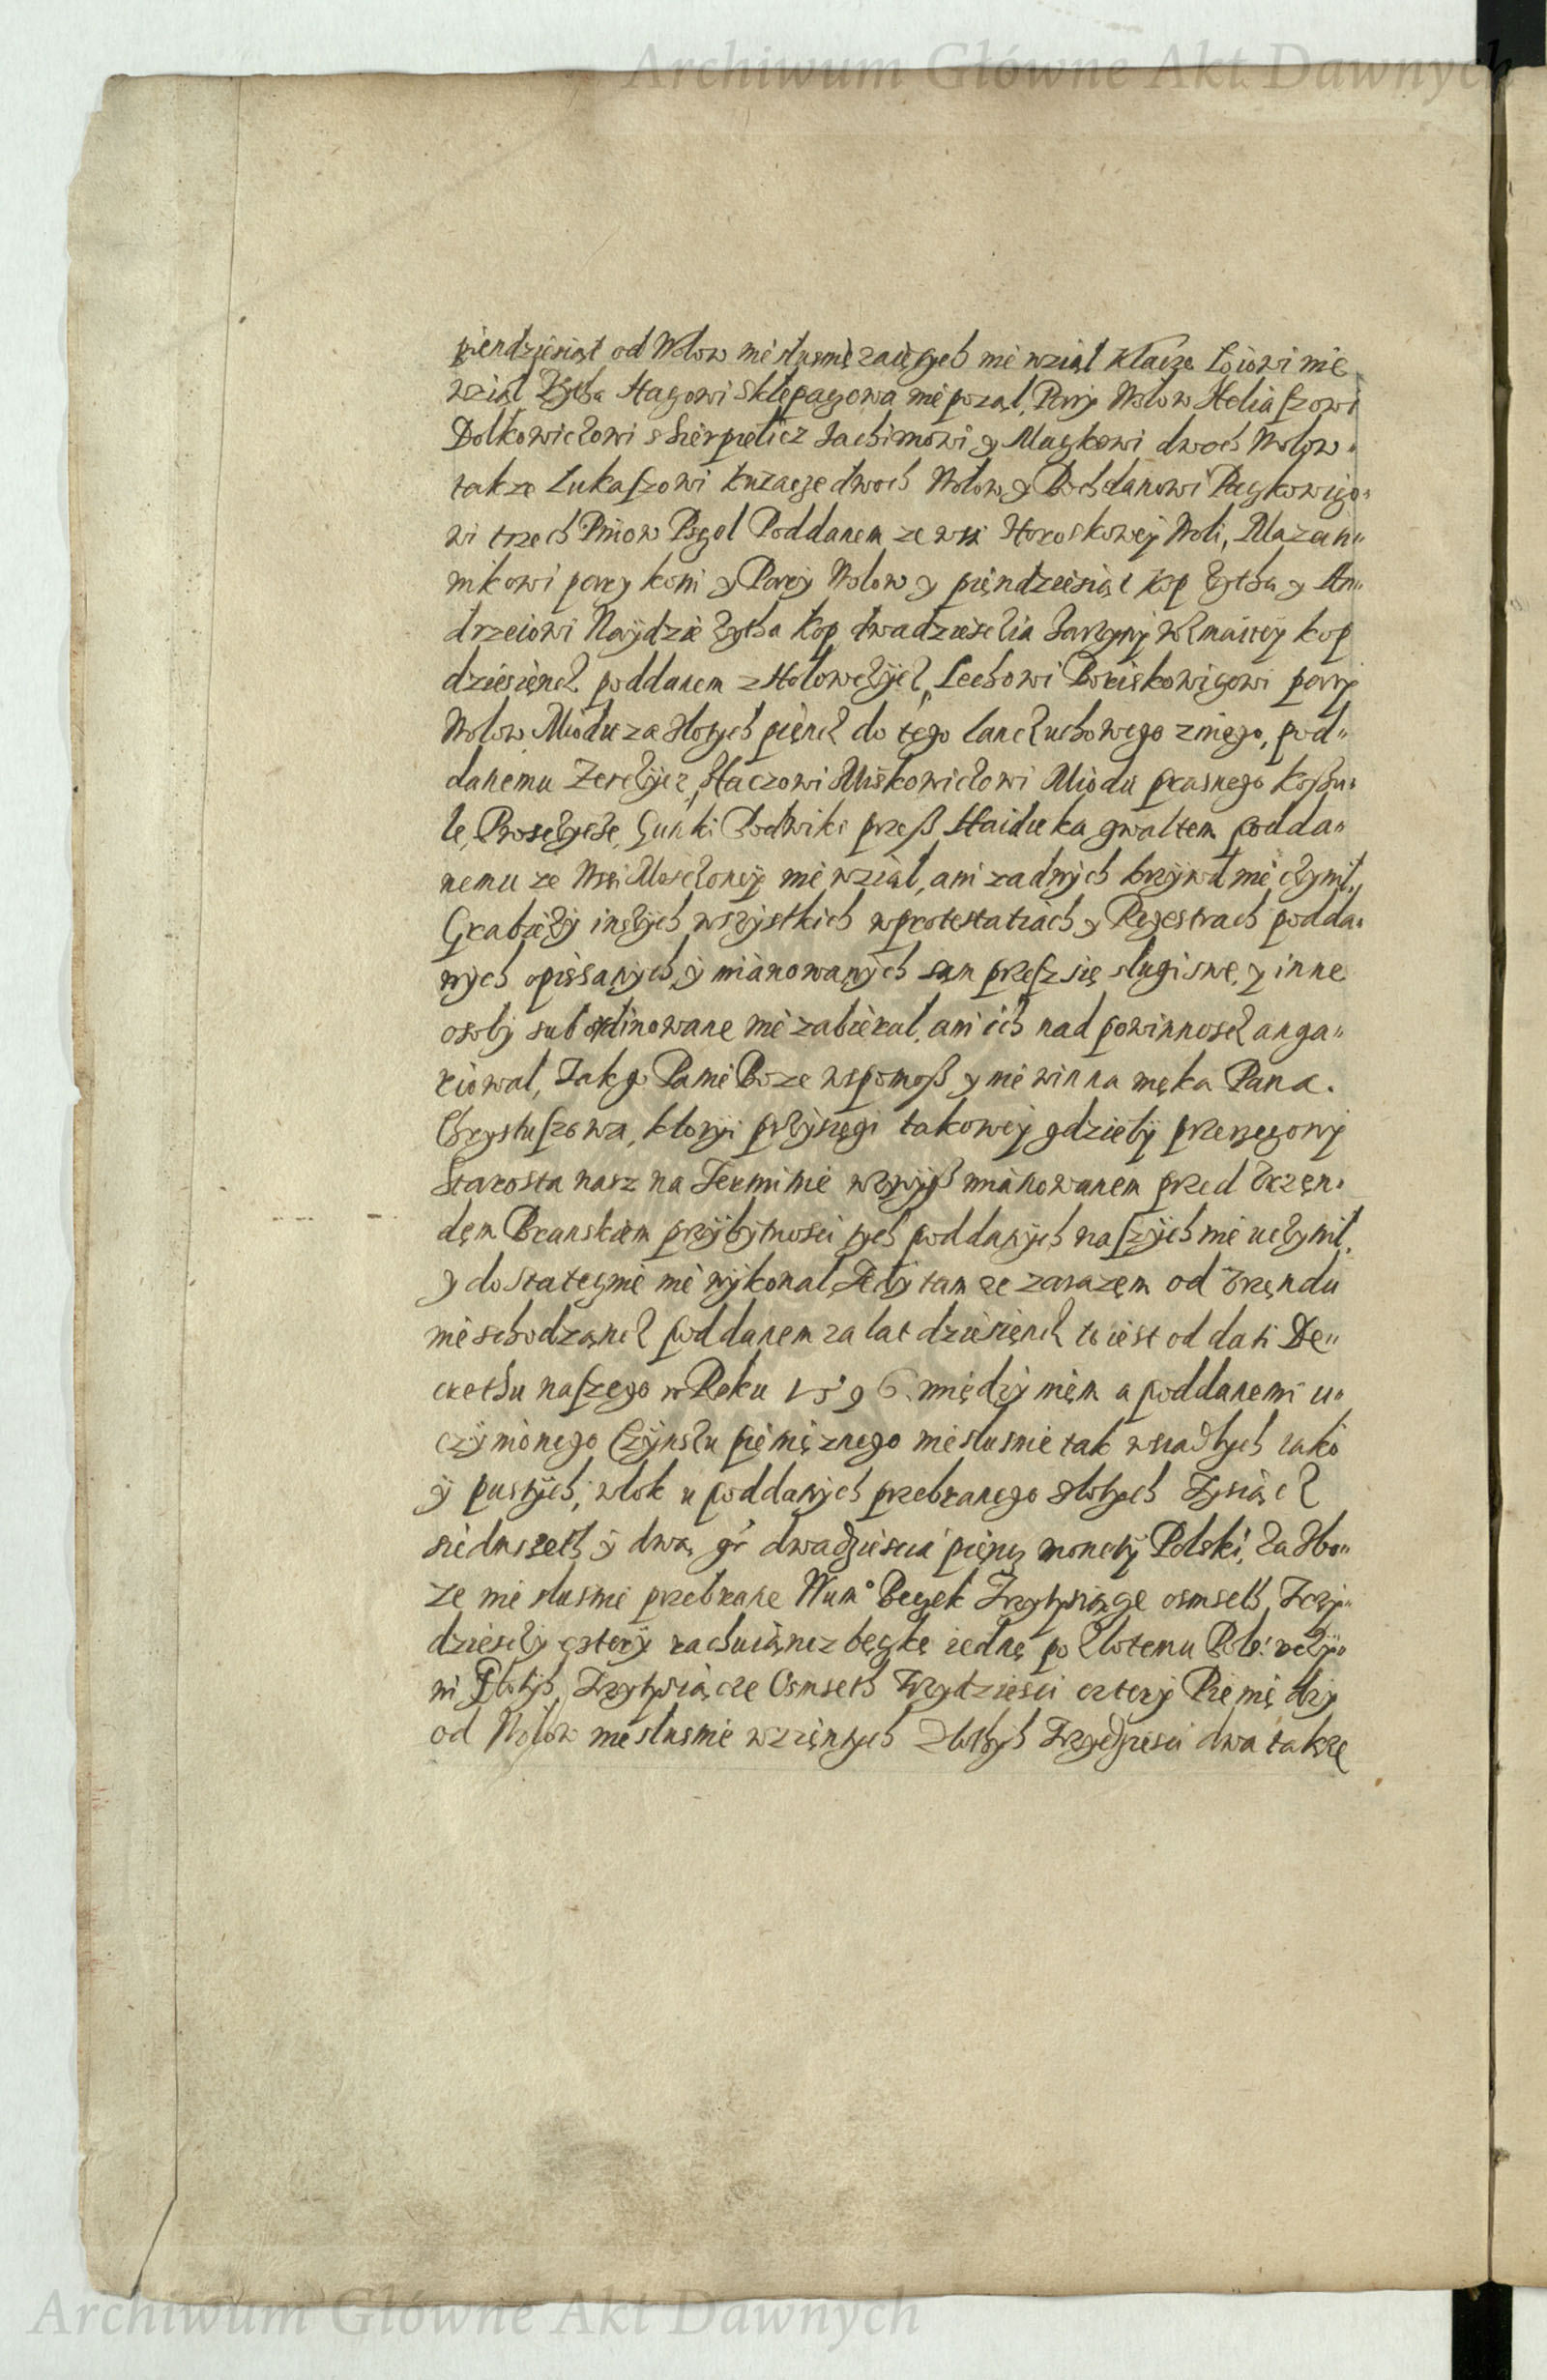 Archiwum Główne Akt Dawnych
piendziesiąt od Wołow niesłusnie zaiętych nie wziął Klacze Łoiowi nie
wziął Żytha Hacowi nie pozął, Pary Wołow Heliaszowi
Dolkowiczowi s Sierpielicz Jachimowi y Mackowi dwoch Wołow
takze Lukaszowi dwoch Wołow y Bohdanowi Packowico„
wi trzech Pniow Psczol Poddanem ze wsi Horoskowey Woli, Mazan„
nikowi pary koni y Pary Wołow y pięndziesiąt kop żytha y An„
drzeiowi Naydzie żytha kop dwadziesczia Jarzyny kop
dziesięncz poddanem z Holowczycz, Lechowi Boriskowicowi pary
Wołow Miodu za złotych pięncz do tego lanczuchowego z niego, pod„
danemu Zerczycz, Haczowi Miskowiczowi Miodu prasnego
le, Prosczycze, Gunki przeß Haiduka gwałtem podda„
nemu ze Wsi Moszczoney nie wziął, ani zadnych krzywd nie czynił,
Grabieży inszych wszystkich w protestatiach y Regestrach podda„
nych opissanych y mianowanych sam przesz się slugi swe, y inne
osoby subordinowane nie zabierał, ani ich nad powinnoscz anga„
riował, Jak go Panie Boze wspomoß y nie winna męka Pana
Chrystuszowa, ktoryi przysięgi takowey gdzieby przerzeczony
Starosta nasz na Terminie wzwyß mianowanem przed Urzęn„
dęm Branskiem przy bytnosci tych poddanych naszych nie uczynił,
y dostatecznie nie wykonał, Tedy tam ze zarazem od Urzęndu
nie schodząncz poddanem za lat dziesięncz to iest od dati De„
crethu naszego w Roku 1596. między niem a poddanemi u„
czynionego Czynszu pienięznego niesłusnie tak osiadłych iako
y pustych, włok u poddanych przebranego złotych Tysiącz
siedmseth y dwa, gr dwadziescia pięncz monety Polski, Za Zbo„
ze nie słusnie przebrane Num° Beczek Trzytysiące osmseth, Trzy„
dziesczy cztery rachuiąncz beczkę iednę po złotemu Pols: uczy„
ni Złotych Trzytysiącze Osmseth Trzydziesci cztery Pieniędzy
od Wołow niesłusnie wzięntych Złothych Trzydziesci dwa takze
Archiwum Główne Akt Dawnych